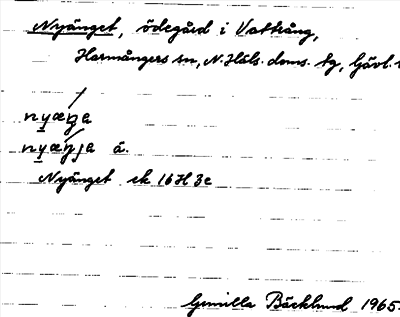 Nyänget, ödegård i Vattrång,
Harmångers sn, N. Häls. doms. tg, Gävl.
nyæŋa
nyæŋja ä.
Nyänget ek 16H 3c
Gunilla Bäcklund 1965.